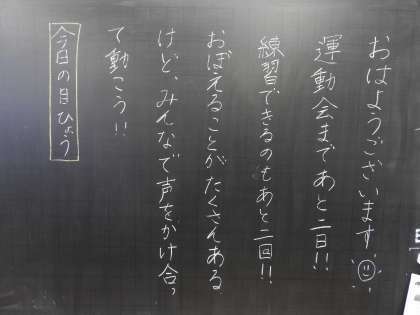 おはようございます
運動会まであと二日!!
練習できるのもあと二回!!
おぼえることがたくさんある
けど、みんなで声をかけ合っ
て動こう!!
今日の目ひょう